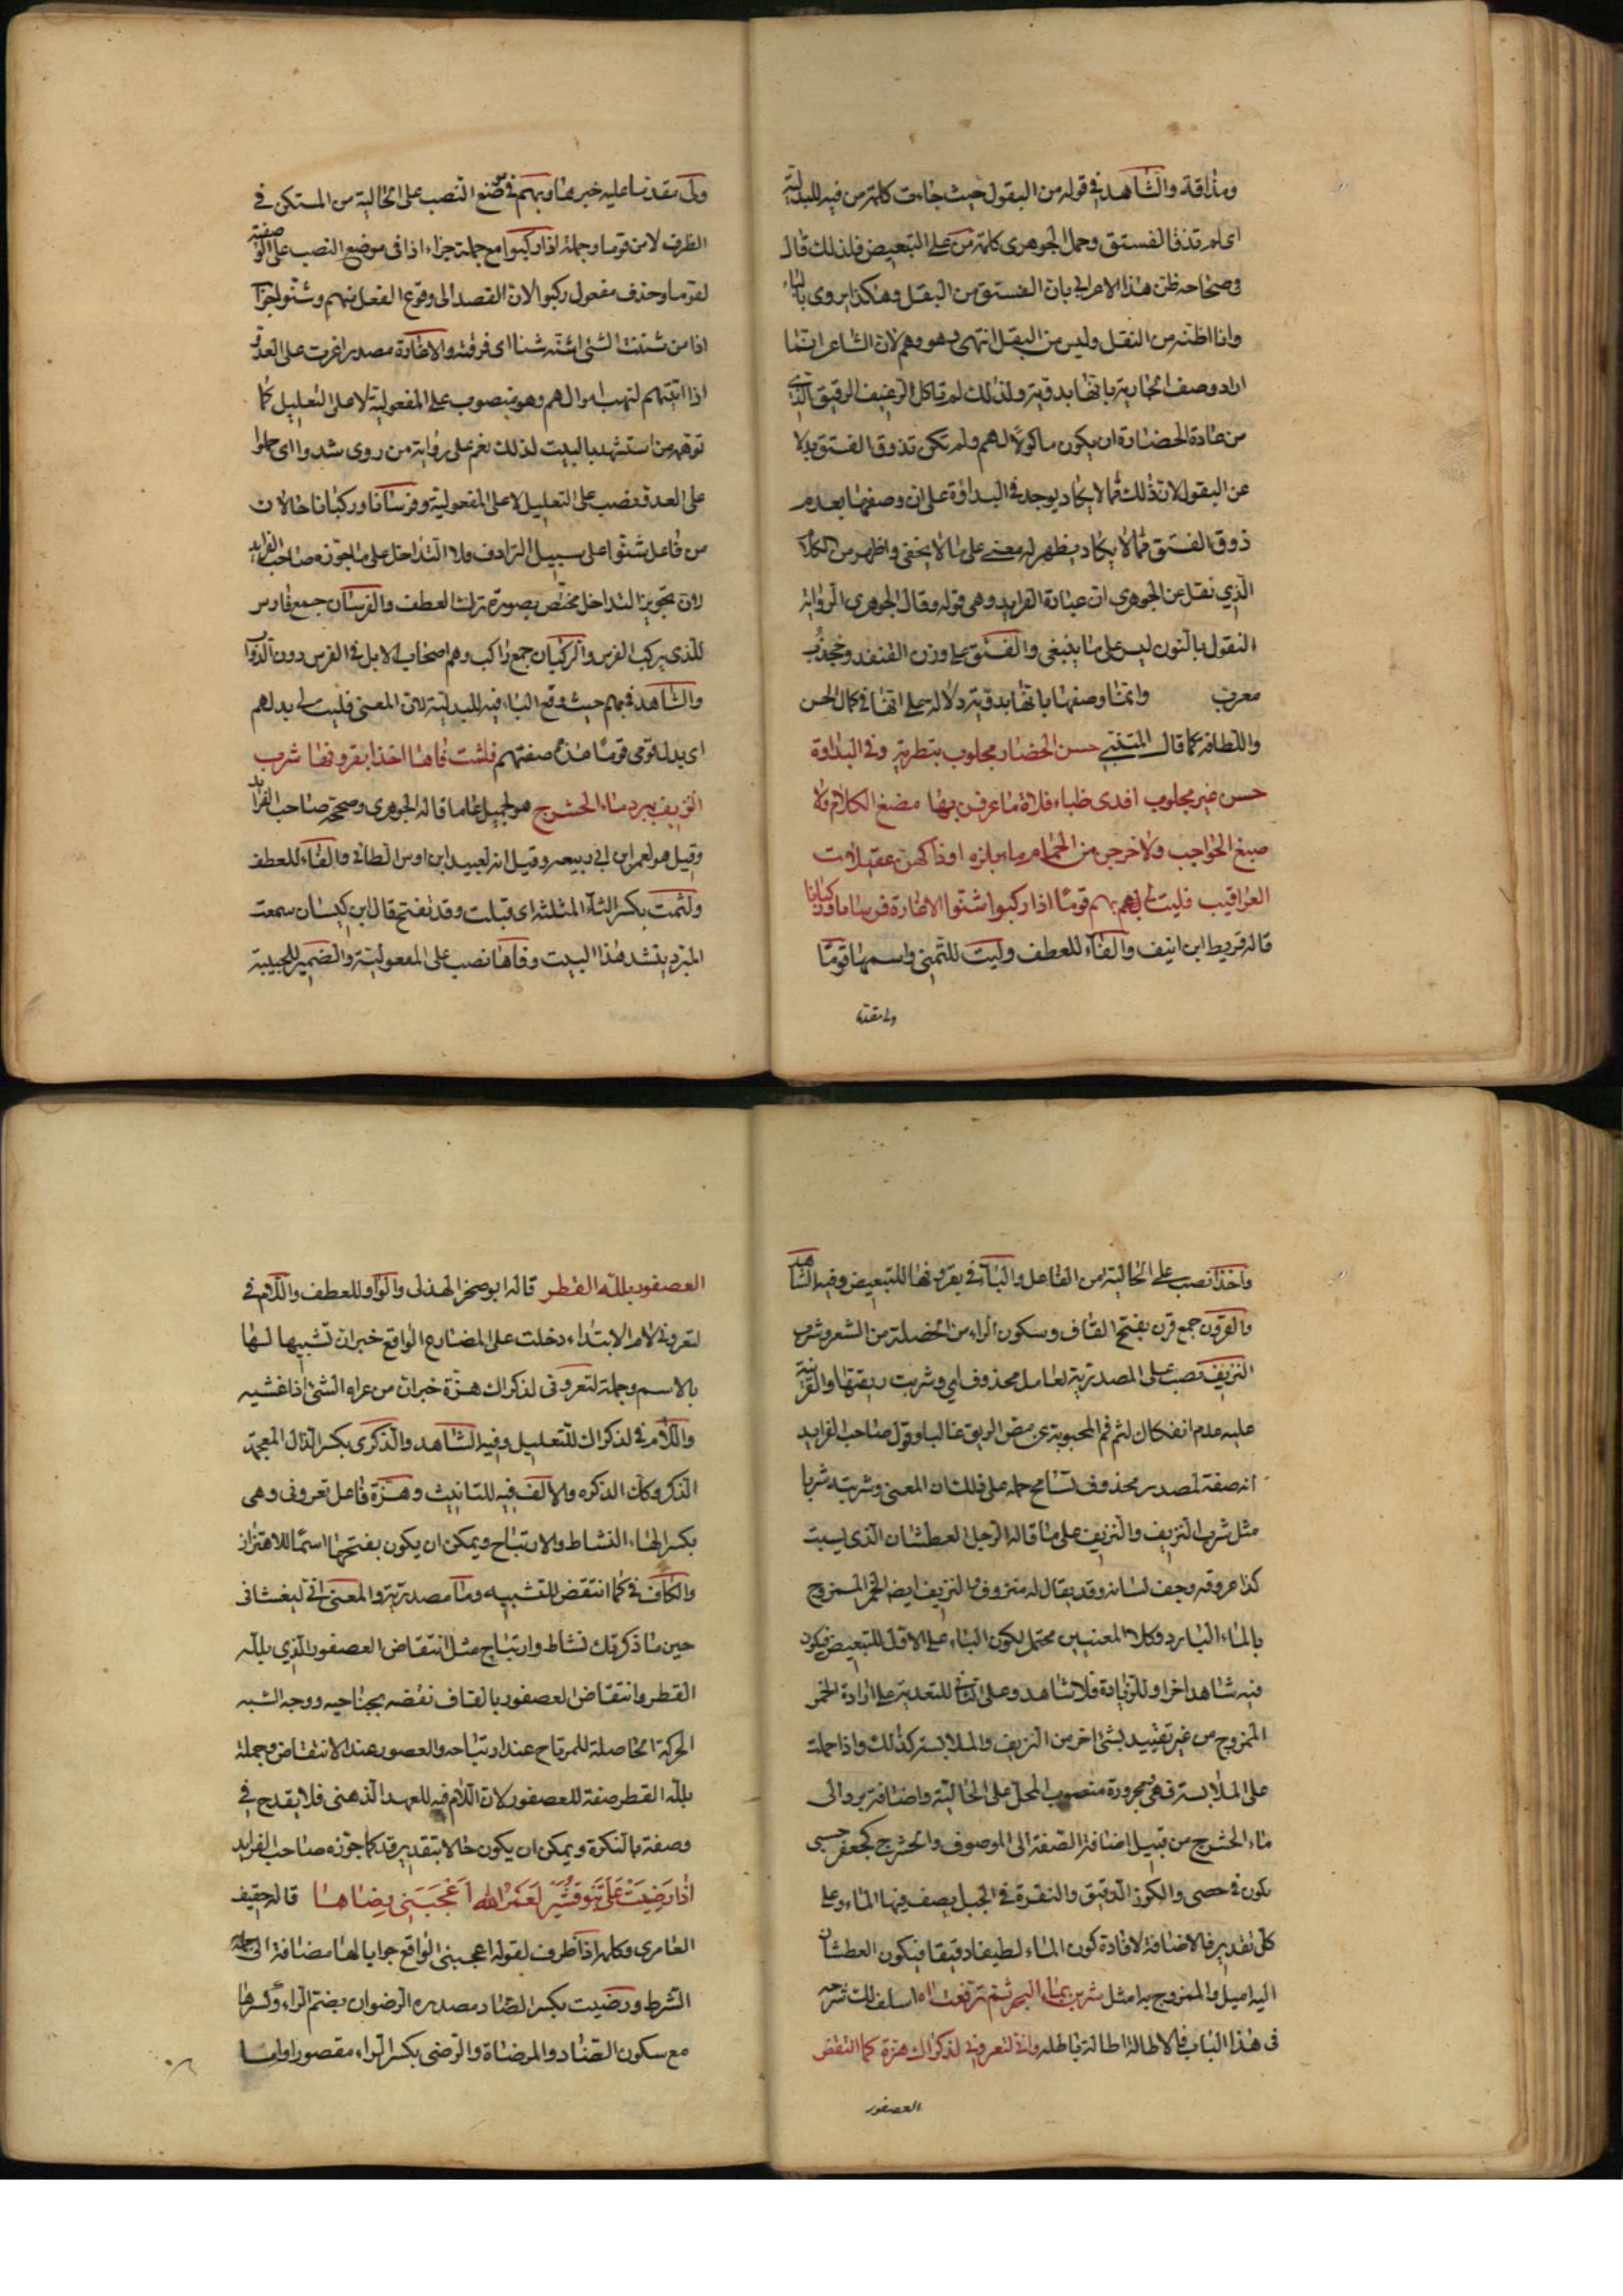 ومذاقة والشاهد في قوله من البقول حيث جاءت كلمة من فيه للبدلية
اى لم تذق الفستق وحمل الجوهرى كلمة من على التبعيض فلذلك قال
في صحاحه ظن هذا الاعرابي بان الفستق من البقل وهكذا يروى بالباء
وانا اظنه من النقل وليس من البقل انتهى وهو وهم لان الشاعر انما
اراد وصف الجارية بانها بدوية ولذلك لم تاكل الرغيف الرقيق الذى
من عادة الحضارة ان يكون ماكولا لهم ولم تكن تذوق الفستق بدلا
عن البقول لان ذلك مما لا يكاد يوجد في البداوة على ان وصفها بعدم
ذوق الفستق مما لا يكاد يظهر له معنى على ما لا يخفى واظهر من الكلام
الذي نقل عن الجوهرى ان عبارة الفرايد وهى قوله وقال الجوهرى الرواية
النقول بالنون ليس على ما ينبغى والفستق على وزن القنفد وجندب
معرب وانما وصفها بانها بدوية دلالة على انها في كمال الحسن
واللطافة كما قال المتنبي حسن الحضار مجلوب بتطرية وفي البداوة
حسن غير مجلوب افدى ظباء فلاة ما عرفن بها مضغ الكلام ولا
صبغ الحواجب ولا خرجن من الحمام مايلة اوراكهن صقيلات
العراقيب فليت لى بهم قوما اذا ركبوا شنوا الاغارة فرسانا وركبانا
قاله قريط ابن انيف والفاء للعطف وليت للتمنى واسمها قوما
ولى مقدما
ولى مقدما عليه خبرها وبهم في موضع النصب على الحالية من المستكن في
الظرف لا من قوما وجملة اذا ركبوا مع جملة جزاء اذا في موضع النصب على الوصفية
لقوما وحذف مفعول ركبوا لان القصد الى وقوع الفعل منهم وشنوا جزاء
اذا من شننت الشئ اشنه شنا اى فرقته والاغارة مصدر اغرت على العدو
اذا اتيتهم لنهب اموالهم وهو منصوب على المفعولية لا على التعليل كما
توهم من استشهد بالبيت لذلك نعم على رواية من روى شدوا اى حملوا
على العدو نصب على التعليل لا على المفعولية وفرسانا وركبانا حالان
من فاعل شنوا على سبيل الترادف ولا التداخل على ما جوزه صاحب الفرايد
لان تجويز التداخل مختص بصورة ترك العطف والفرسان جمع فارس
للذى يركب الفرس والركبان جمع راكب وهم اصحاب الابل في الفرس دون الدواب
والشاهد في بهم حيث وقع الباء فيه للبدلية لان المعنى فليت لى بدلهم
اى بدل قومى قوما هذه صفتهم فلثمت فاها اخذا بقرونها شرب
النزيف ببرد ماء الحشرج هو لجميل على ما قاله الجوهرى وصححه صاحب الفرايد
وقيل هو لعمر ابن ابي ربيعه وقيل انه لعبيد ابن اوس الطائي والفاء للعطف
ولثمت بكسر الثاء المثلثة اى قبلت وقد تفتح قال ابن كيسان سمعت
المبرد ينشد هذا البيت وفاها نصب على المفعولية والضمير للحبيبة
واخذا نصب على الحالية من الفاعل والباء في بقرونها للتبعيض وفيه الشاهد
والقرون جمع قرن بفتح القاف وسكون الراء من الخصلة من الشعر وشرب
النزيف نصب على المصدرية لعامل محذوف اي وشربت ريقتها والقرينة
عليه عدم انفكاك لثم فم المحبوبة عن مص الريق غالبا وقول صاحب الفرايد
انه صفة لمصدر محذوف تسامح حمله على ذلك ان المعنى وشربته شربا
مثل شرب النزيف والنزيف على ما قاله الرجل العطشان الذى يبست
كذا عروقه وجف لسانه وقد يقال له منزوف والنزيف ايضا الخمر الممزوج
بالماء البارد وكلا المعنيين محتمل لكون الباء على الاول للتبعيض فيكون
فيه شاهد اخر او للزيادة فلا شاهد وعلى الثاني للتعدية على ارادة الخمر
الممزوج من غير تقييد بشئ اخر من النزيف والملابسة كذلك واذا حملت
على الملابسة فهى مجرورة منصوب المحل على الحالية واضافة برد الى
ماء الحشرج من قبيل اضافة الصفة الى الموصوف والحشرج كجعفر حسى
يكون في حصى والكوز الرقيق والنقرة في الجبل يصف فيها الماء وعلى
كل تقدير فالاضافة لافادة كون الماء لطيفا دقيقا فيكون العطشان
اليه اميل والممزوج به امثل شربن بماء البحر ثم ترفعت اه اسلف لك شرحه
في هذا الباب فالاطالة اطالة باطلة وانى لتعرونى لذكراك هزة كما انتقض
العصفور
العصفور بلله القطر قاله ابو صخر الهذلى والواو للعطف واللام في
لتعرونى لام الابتداء دخلت على المضارع الواقع خبر ان تشبيها لها
بالاسم وجملة لتعرونى لذكراك هزة خبر ان من عراه الشئ اذا غشيه
واللام في لذكراك للتعليل وفيه الشاهد والذكرى بكسر الذال المعجمة
الذكر وكذا الذكره والالف فيه للتانيث وهزة فاعل تعرونى وهى
بكسر الهاء النشاط والارتياح ويمكن ان يكون بفتحها اسما للاهتزاز
والكاف في كما انتقض للتشبيه وما مصدرية والمعنى انى ليغشانى
حين ما ذكرتك نشاط وارتياح مثل انتقاض العصفور الذي بلله
القطر وانتقاض العصفور بالقاف نفضه بجناحيه ووجه الشبه
الحركة الحاصلة للمرتاح عند ارتياحه والعصفور عند الانتقاض وجملة
بلله القطر صفة للعصفور لان اللام فيه للعهد الذهنى فلا يقدح في
وصفة بالنكرة ويمكن ان يكون حالا بتقدير قد كما جوزه صاحب الفرايد
اذا رضيت علي بنو قشير لعمر الله اعجبنى رضاها قاله قحيف
العامرى وكلمة اذا ظرف لقوله اعجبنى الواقع جوابا لها مضافة الى جملة
الشرط ورضيت بكسر الضاد مصدره الرضوان بضم الراء وكسرها
مع سكون الضاد والمرضاة والرضى بكسر الراء مقصورا واما